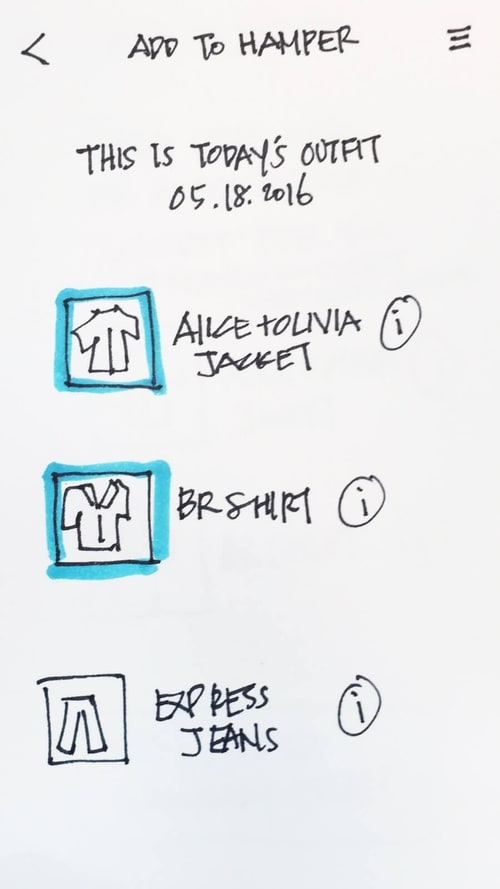 < ADD TO HAMPER
THIS IS TODAY'S OUTFIT
05.18.2016
ALICE+OLIVIA i
JACKET
BR SHIRT i
EXPRESS i
JEANS